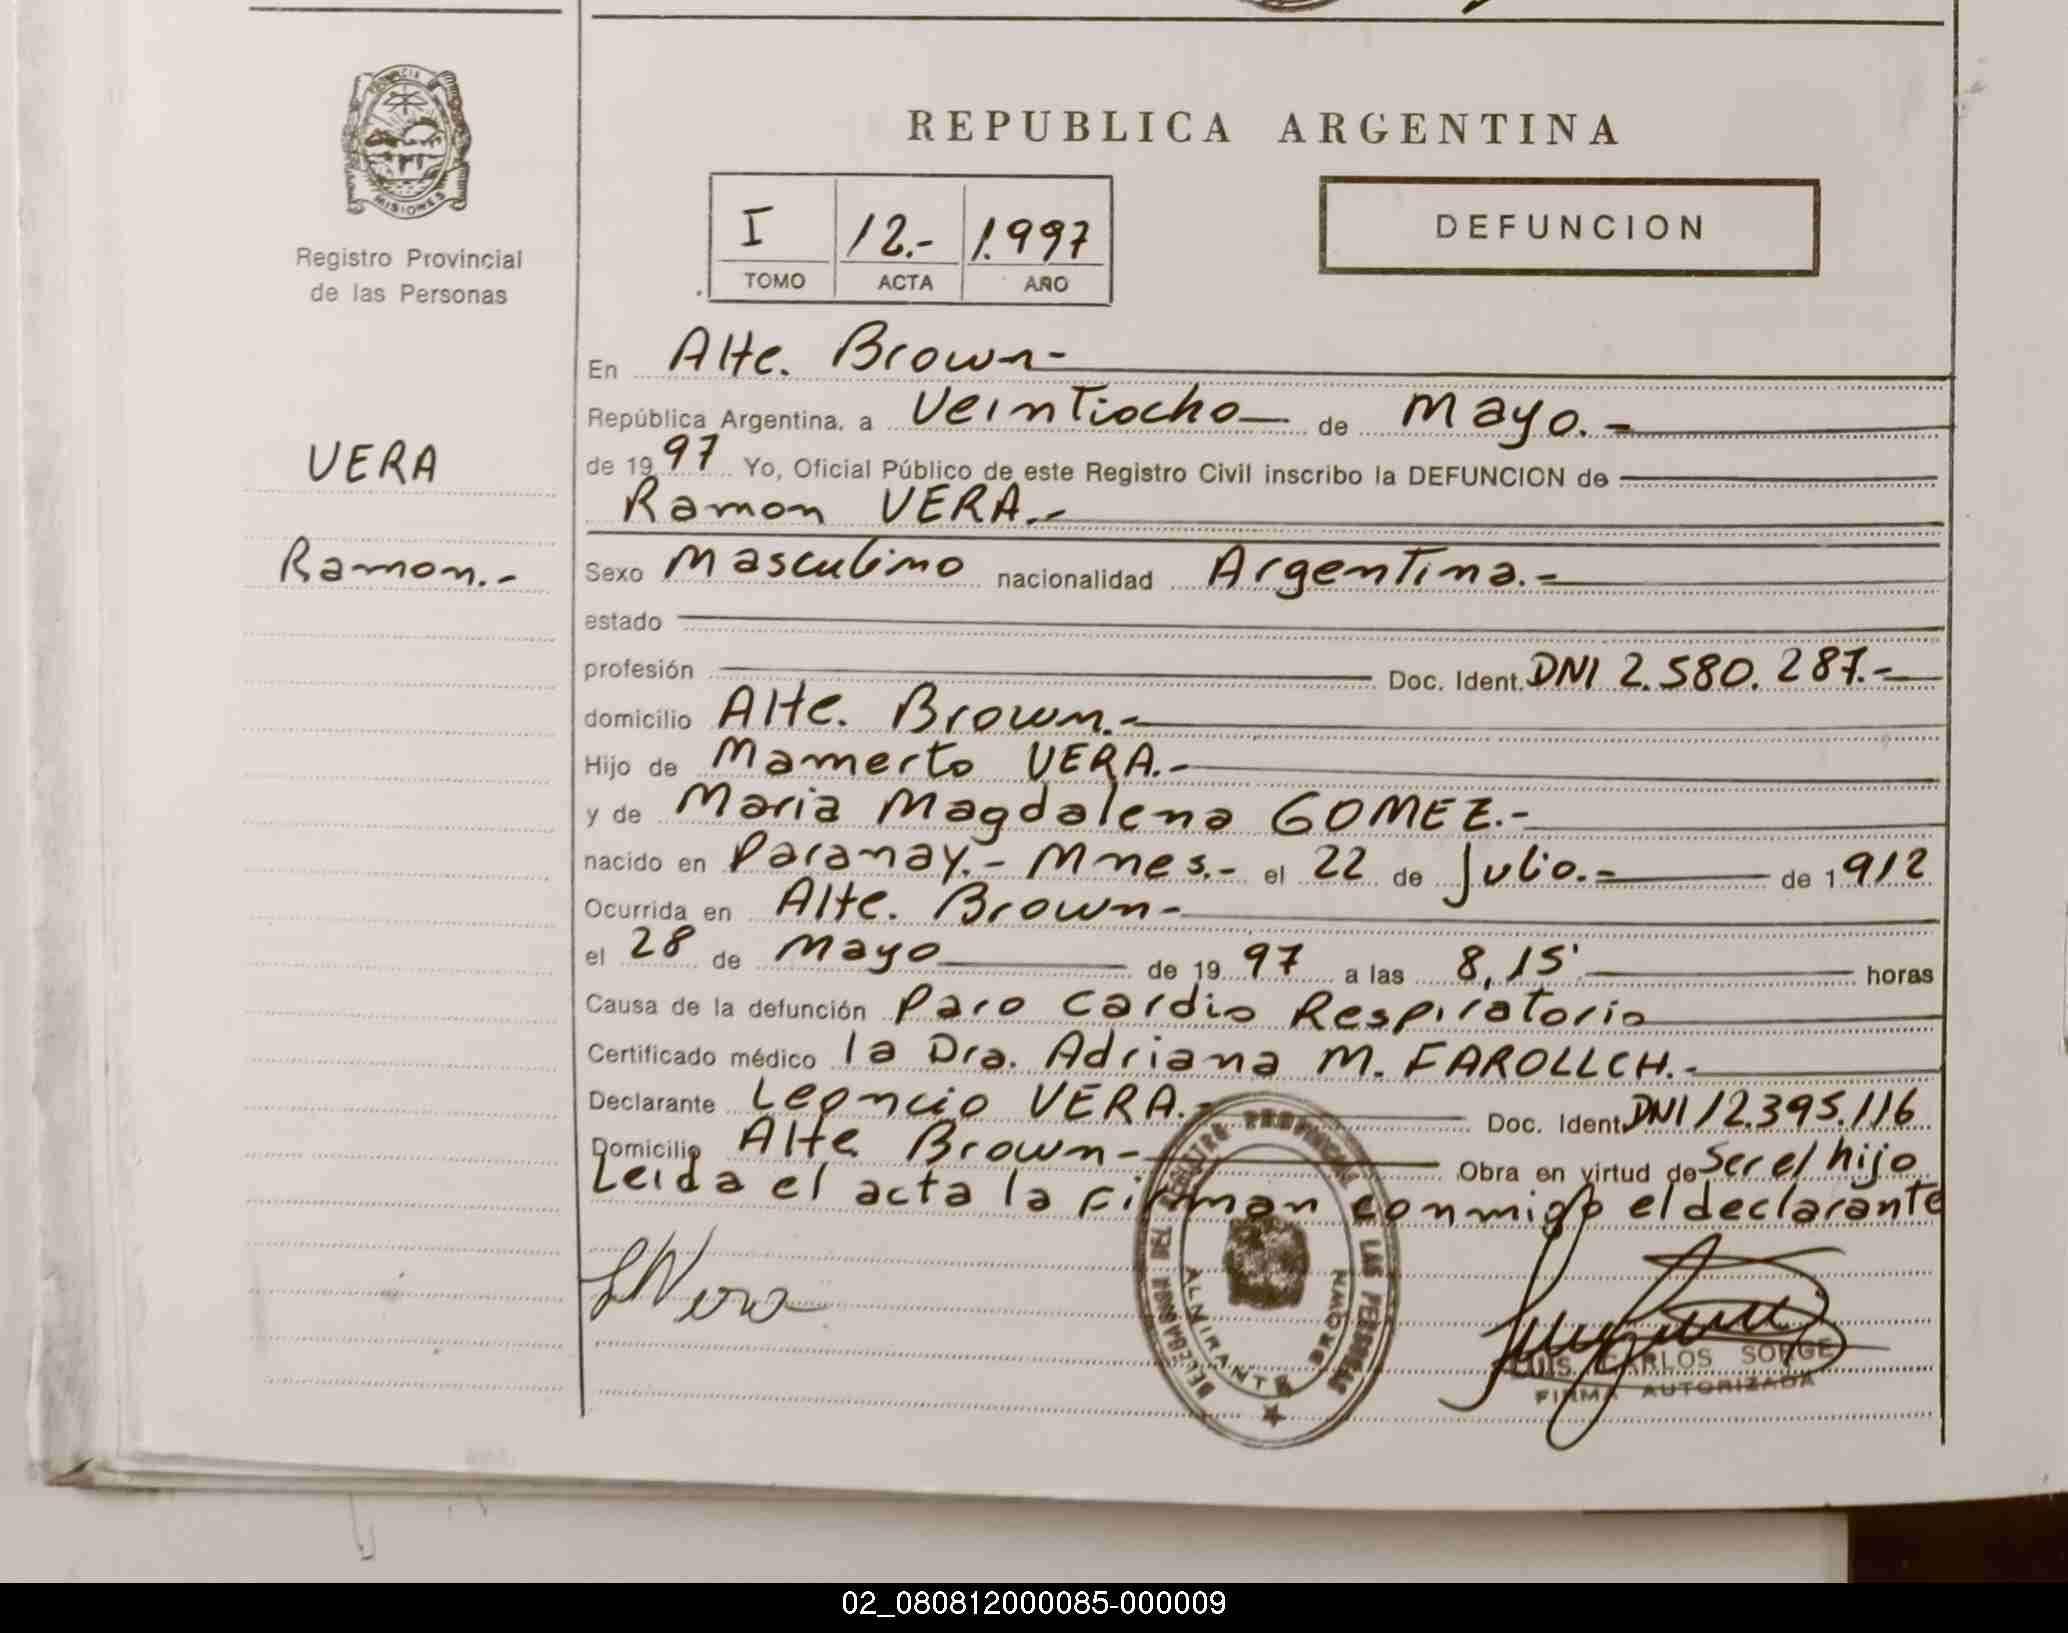 PROVINCIA DE
MISIONES
Registro Provincial
de las Personas
VERA
Ramon.-
REPUBLICA ARGENTINA
I 12.- 1.997
TOMO ACTA AÑO
DEFUNCION
En Alte. Brown-
República Argentina, a Veintiocho de Mayo.-
de 1997 Yo, Oficial Público de este Registro Civil inscribo la DEFUNCION de
Ramon VERA.-
Sexo Masculino nacionalidad Argentina.-
estado
profesión Doc. Ident. DNI 2.580.287.-
domicilio Alte. Brown.-
Hijo de Mamerto VERA.-
y de Maria Magdalena GOMEZ.-
nacido en Paranay.- Mnes.- el 22 de Julio.- de 1912
Ocurrida en Alte. Brown-
el 28 de Mayo de 1997 a las 8,15' horas
Causa de la defunción Paro Cardio Respiratorio
Certificado médico la Dra. Adriana M. FAROLLCH.-
Declarante Leoncio VERA.- Doc. Ident. DNI 12.395.116
Domicilio Alte Brown- Obra en virtud de Ser el hijo
Leida el acta la Firman conmigo el declarante
LVera
DELEGACION DEL REGISTRO PROVINCIAL DE LAS PERSONAS
ALMIRANTE BROWN
LUIS CARLOS SORGE
FIRMA AUTORIZADA
02_080812000085-000009